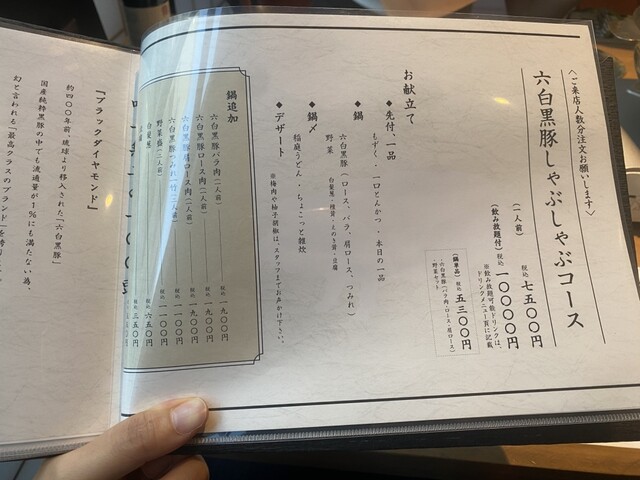 〈ご来店人数分注文お願いします〉
六白黒豚しゃぶしゃぶコース
（一人前） 税込 七五〇〇円
（飲み放題付） 税込 一〇〇〇〇円
※飲み放題可能ドリンクは、
ドリンクメニュー頁に記載
（鍋単品） 税込 五三〇〇円
・六白黒豚（バラ肉・ロース・肩ロース）
・野菜セット
お献立て
◆先付、一品
もずく・一口とんかつ・本日の一品
◆鍋
六白黒豚（ロース、バラ、肩ロース、つみれ）
野菜 白髪葱・榎茸・えのき茸・豆腐
◆鍋〆
稲庭うどん・ちょこっと雑炊
◆デザート
※梅肉や柚子胡椒は、スタッフまでお声がけ下さい。
鍋追加
六白黒豚バラ肉（一人前） 税込 一九〇〇円
六白黒豚ロース肉（一人前） 税込 一九〇〇円
六白黒豚肩ロース肉（一人前） 税込 一九〇〇円
六白黒豚つみれ一竹（二人前） 税込 一一〇〇円
野菜盛（二人前） 税込 一一〇〇円
白髪葱 税込 六五〇円
三五〇円
「ブラックダイヤモンド」
約四〇〇年前、琉球より移入された「六白黒豚」
国産純粋黒豚の中でも流通量が1％にも満たない為、
幻と言われる「最高クラスのブランド」